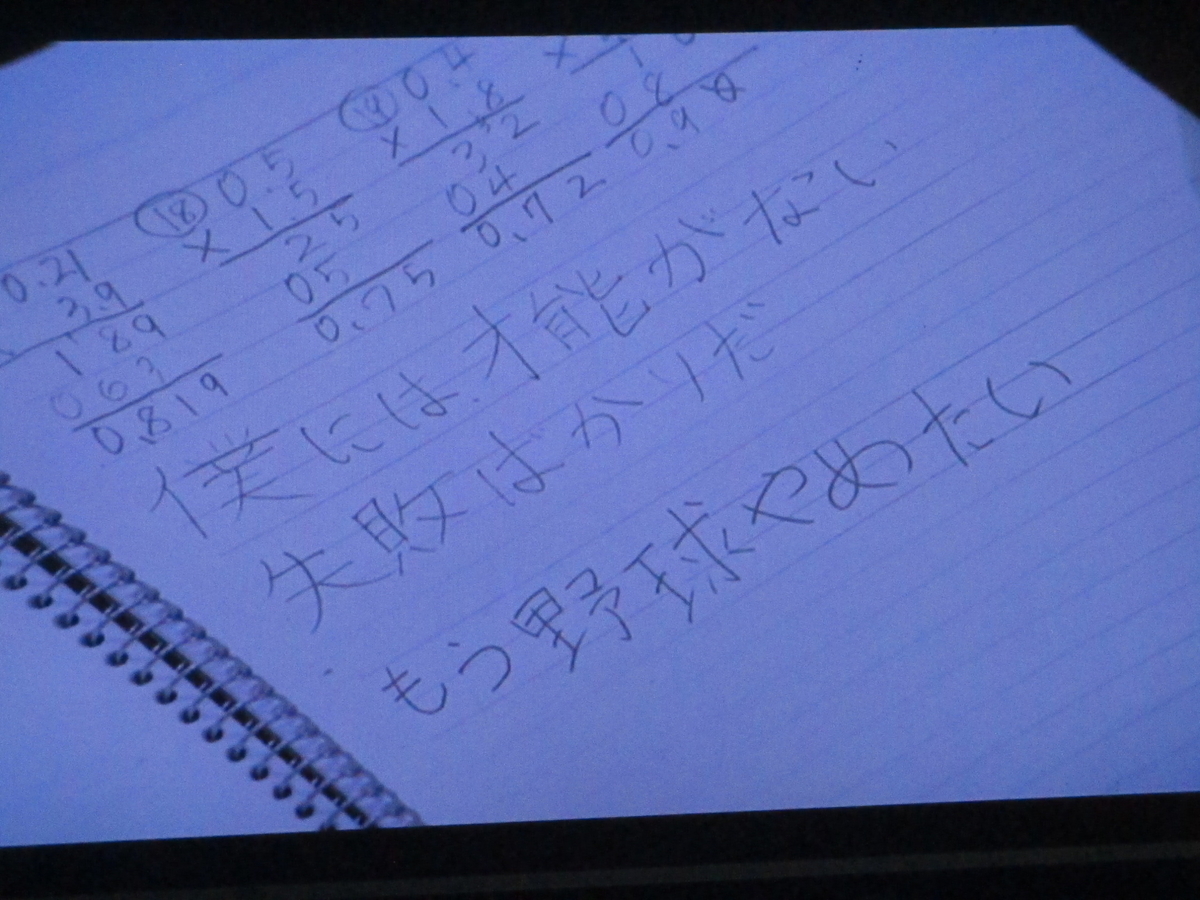 0.21
3.9
189
063
0.819
⑱ 0.5
× 1.5
25
05
0.75
⑲ 0.4
× 1.8
32
04
0.72
×
08
0.90
僕には才能がない
失敗ばかりだ
もう野球やめたい